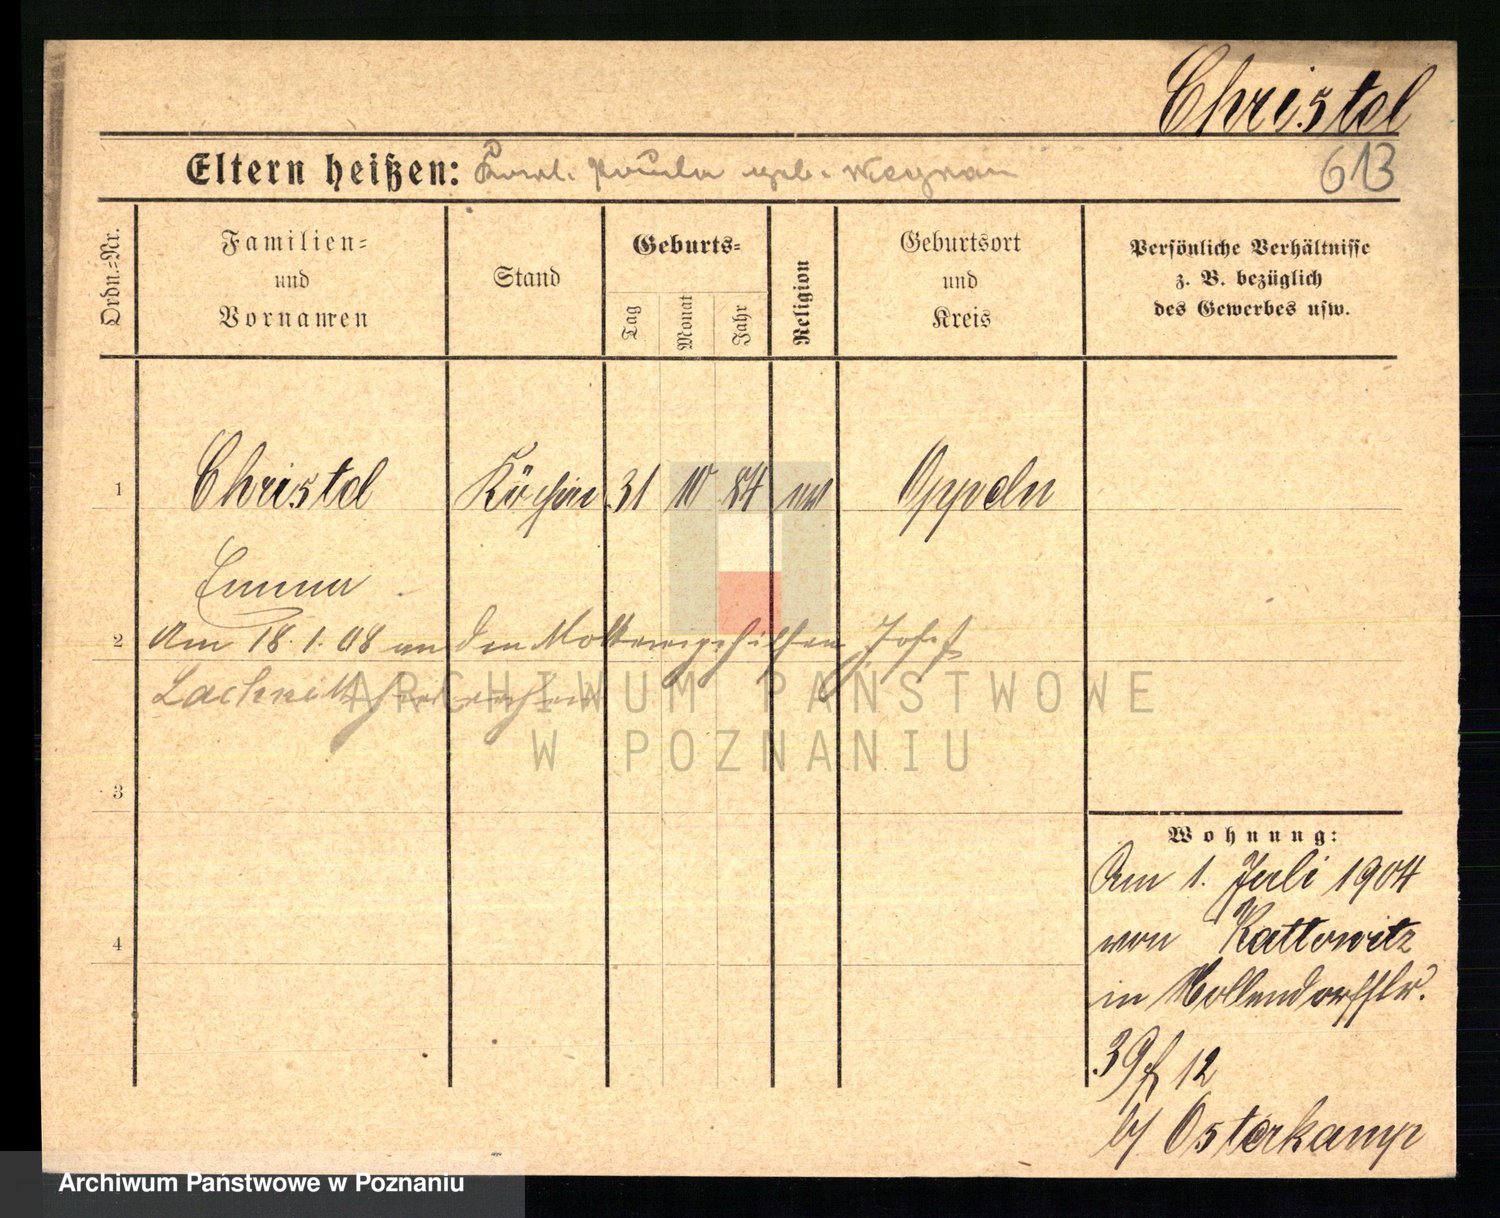 Christel
Eltern heißen: Karl. Paula geb.
613
Ordn.-Nr.
Familien-
und
Vornamen
Stand
Geburts-
Tag
Monat
Jahr
Religion
Geburtsort
und
Kreis
Persönliche Verhältnisse
z. B. bezüglich
des Gewerbes usw.
1 Christel Köchin 31 10 84 Oppeln
Emma
2 Am 18.1.08 an den Molkereigehilfen Josef
Lachnitt
ARCHIWUM PAŃSTWOWE
W POZNANIU
3
4
Wohnung:
Am 1. Juli 1904
von Kattowitz
in
39 12
b/ Osterkamp
Archiwum Państwowe w Poznaniu